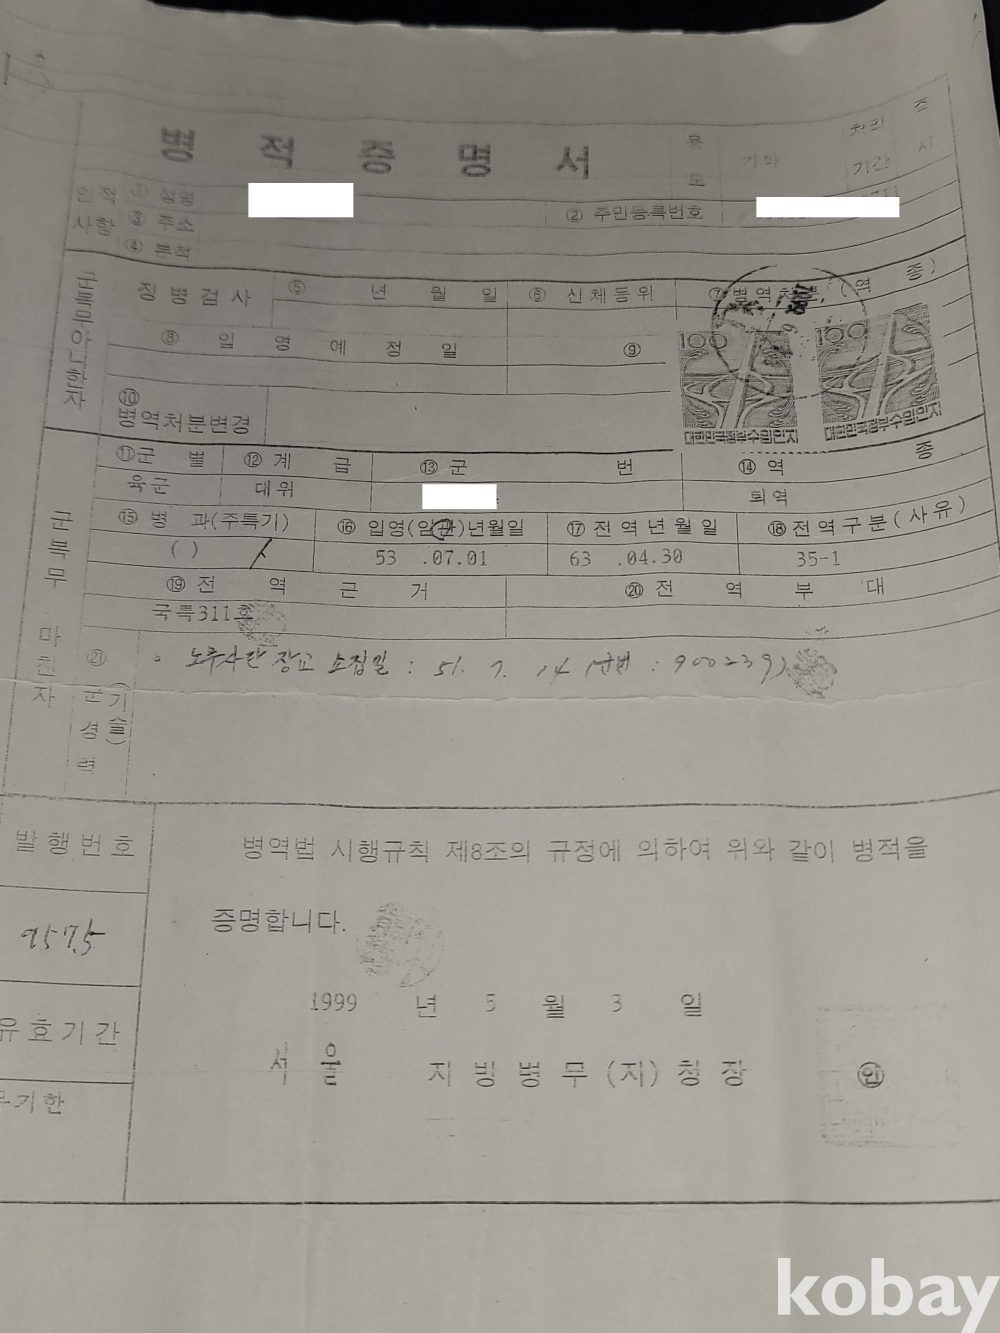 병 적 증 명 서
용 도 기타 처리 기간 즉 시
인적 사항 ① 성명
② 주민등록번호
③ 주소
④ 본적
군복무아니한자
징병검사 ⑤ 년 월 일 ⑥ 신체등위 ⑦ 병역처분(역 종)
⑧ 입 영 예 정 일 ⑨
100 100
대한민국정부수입인지 대한민국정부수입인지
⑩ 병역처분변경
군복무 마친자
⑪ 군 별 ⑫ 계 급 ⑬ 군 번 ⑭ 역 종
육군 대위 퇴역
⑮ 병 과(주특기) ⑯ 입영(임관)년월일 ⑰ 전역년월일 ⑱ 전역구분(사유)
( ) 53 .07.01 63 .04.30 35-1
⑲ 전 역 근 거 ⑳ 전 역 부 대
국특311호
㉑ 군경력 (기술)
노무사단 장교 소집일 : 51. 7. 14 (군번 : 900239
발행번호
9575
유효기간
무기한
병역법 시행규칙 제8조의 규정에 의하여 위와 같이 병적을
증명합니다.
1999 년 5 월 3 일
서울 지방병무(지)청장 ㊞
kobay